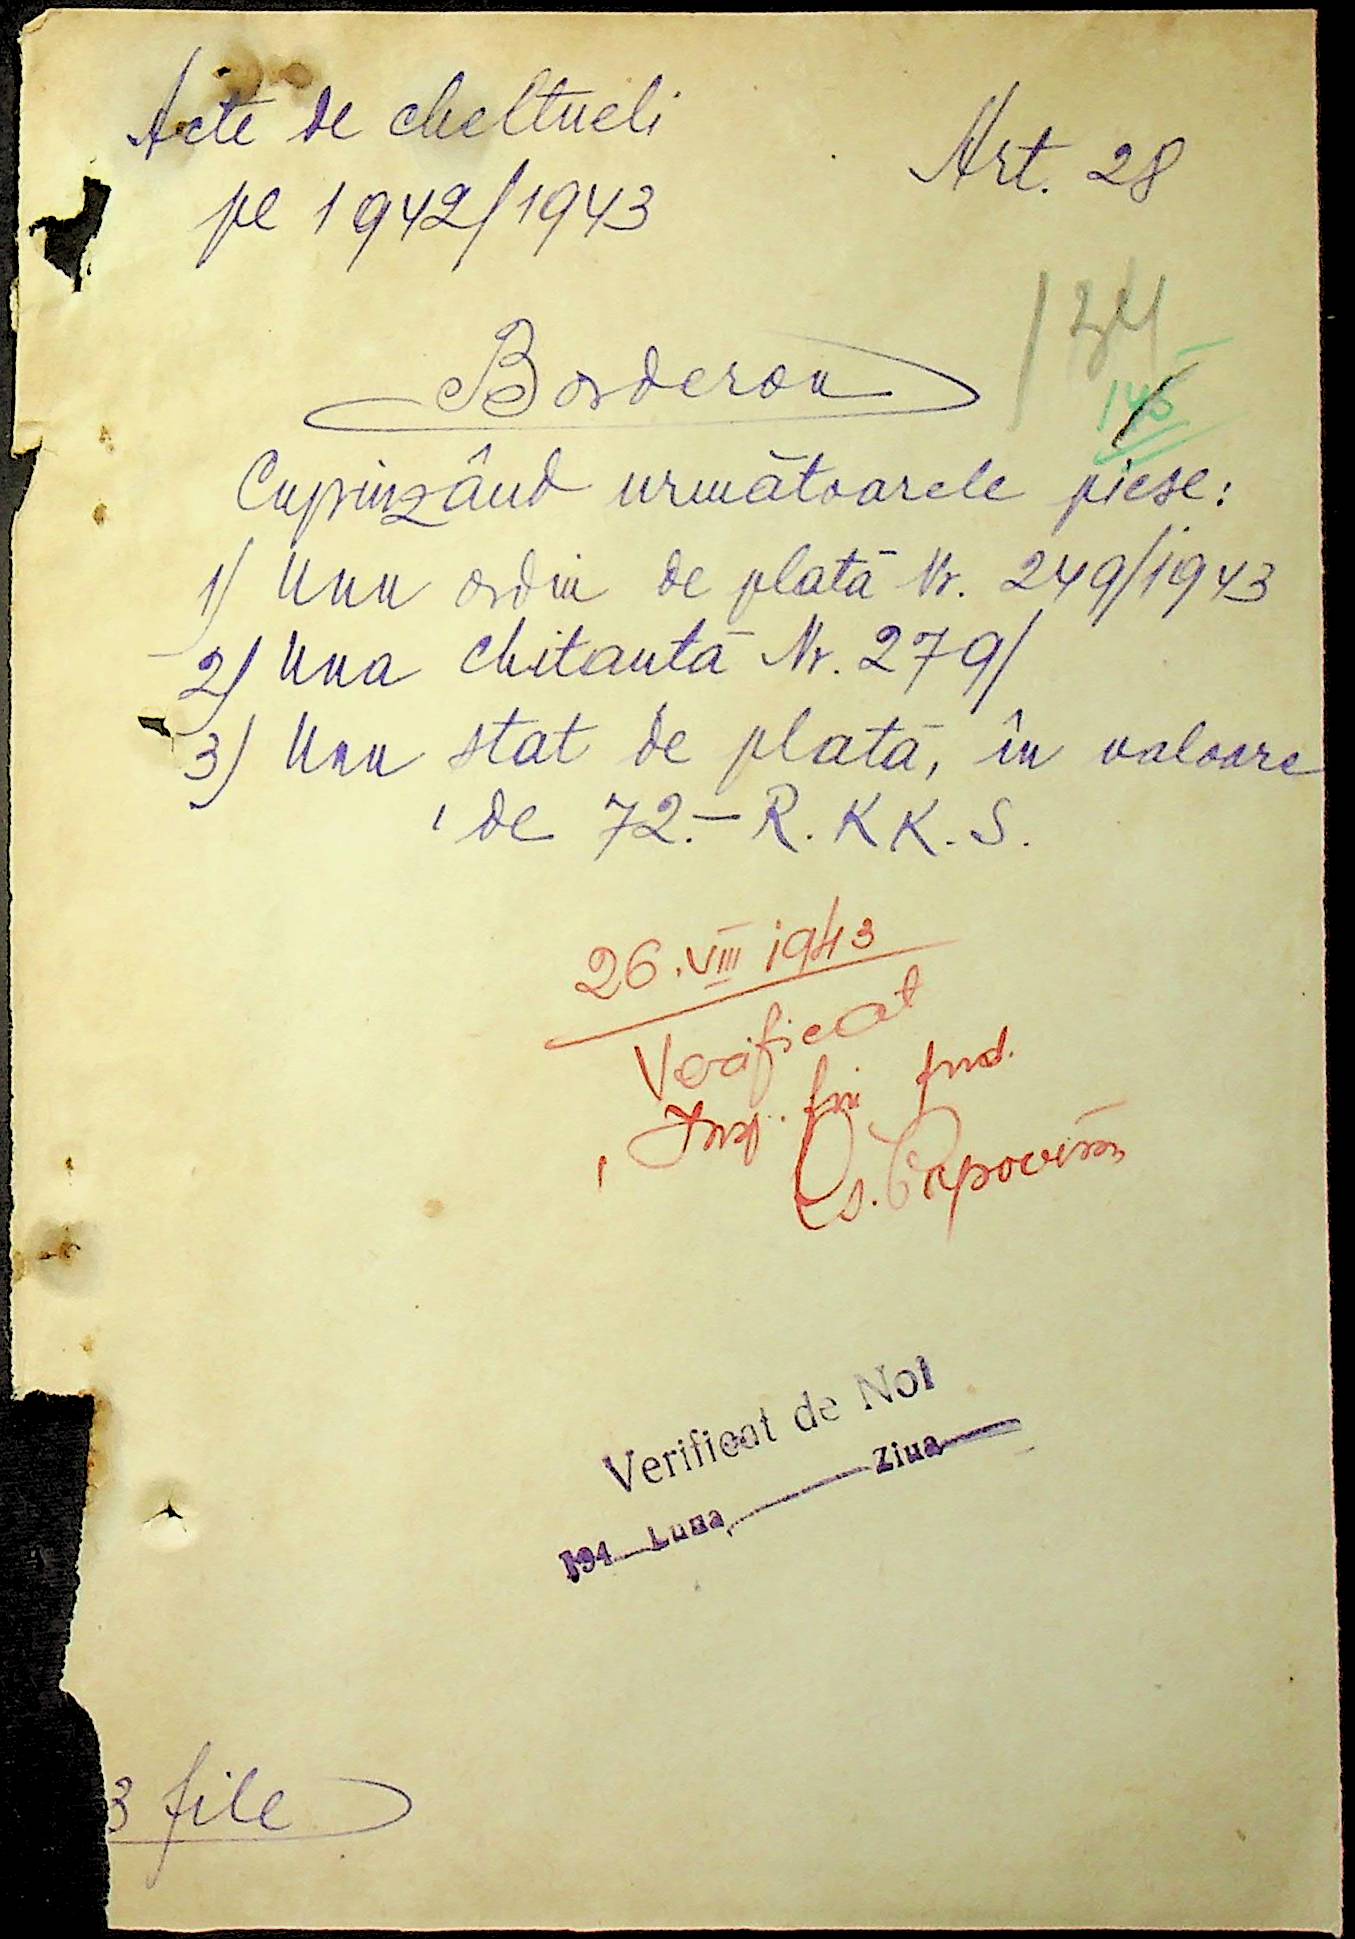 Acte de cheltueli
pe 1942/1943
Art. 28
134
145
Borderou
Cuprinzând următoarele piese:
1/ Unu ordin de plată Nr. 249/1943
2/ Una chitantă Nr. 279/
3/ Unu stat de plată, în valoare
de 72.- R.KK.S.
26.VIII 1943
Verificat
Insp. fin
Verificat de Noi
194 Luna Ziua
3 file